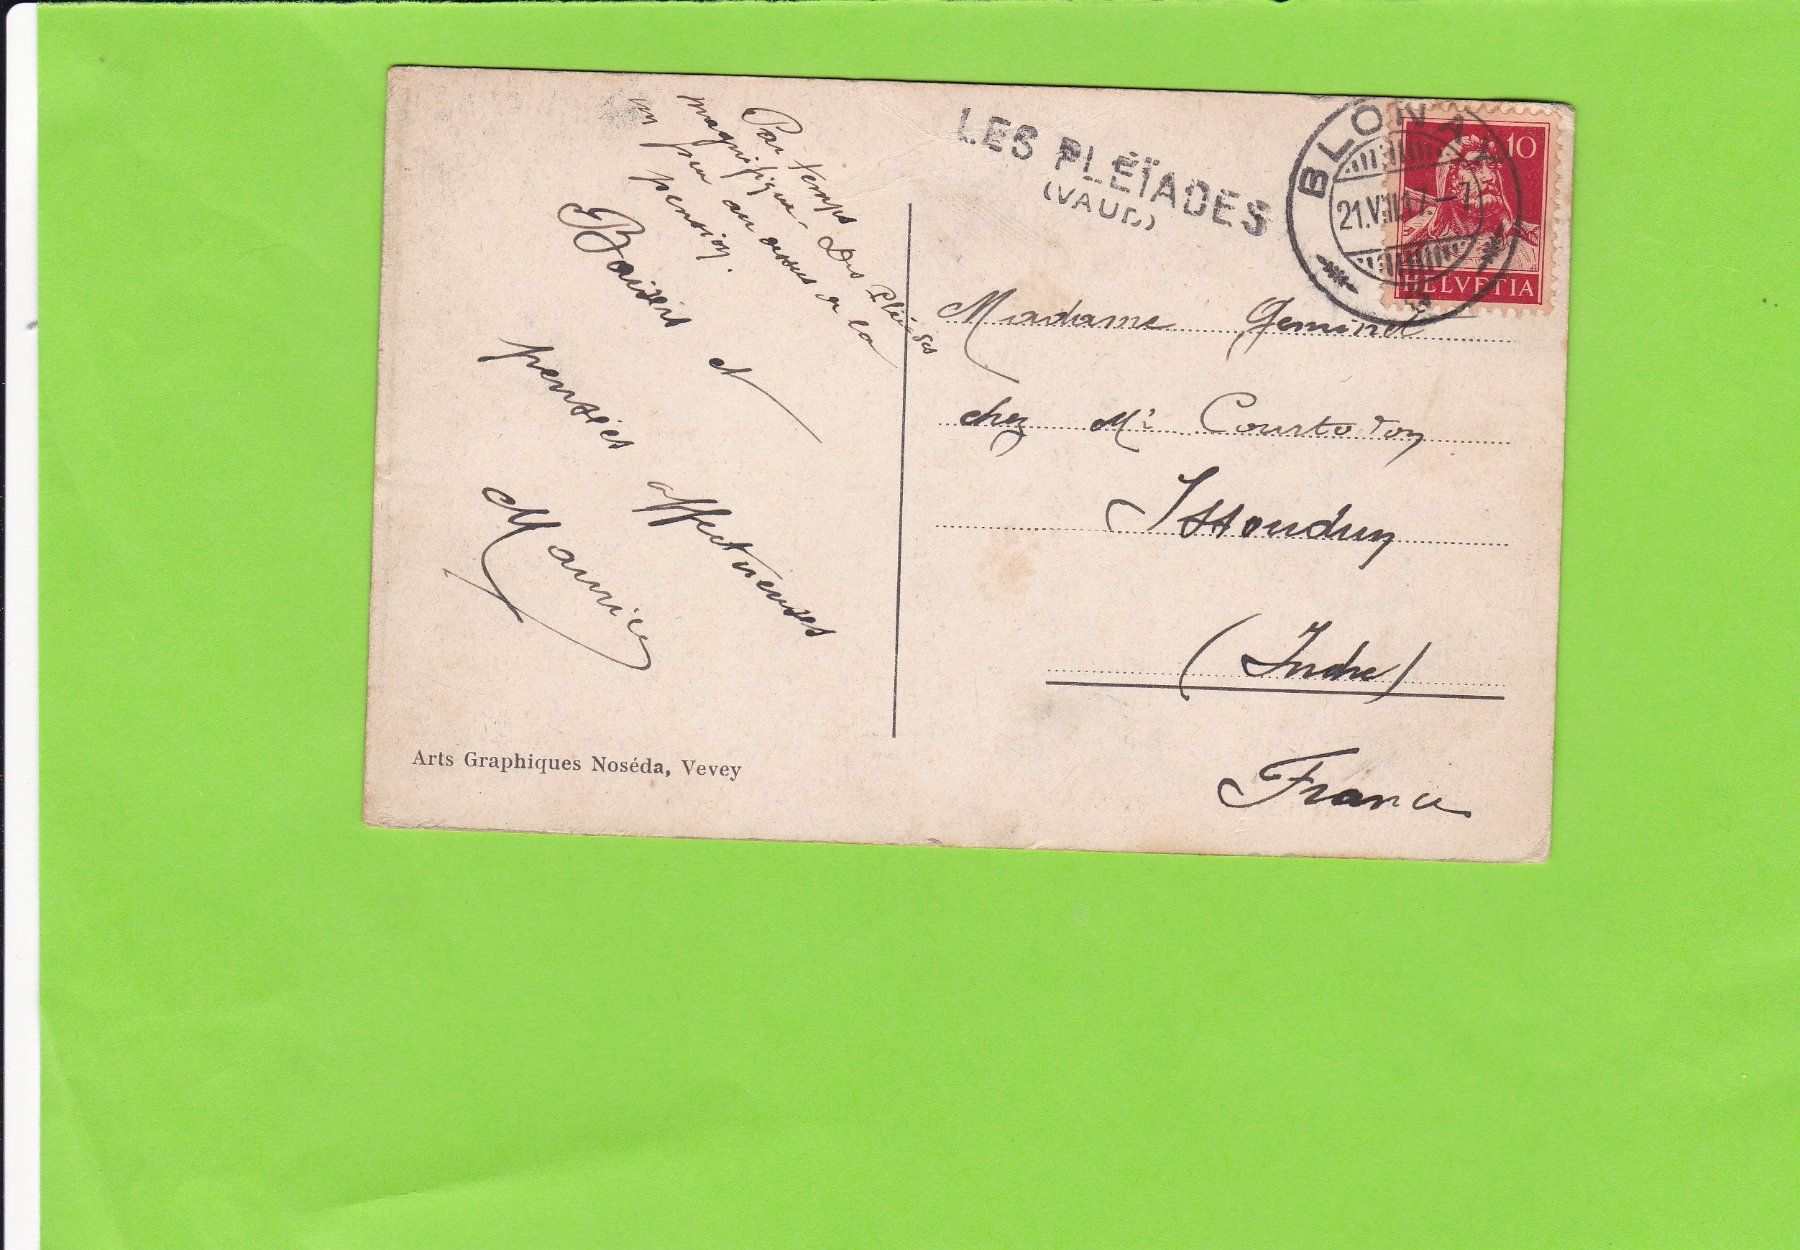 Par temps
magnifique. Des Pléiades
un peu au dessus de la
pension.
Baisers et
pensées affectueuses
Maurice
Arts Graphiques Noséda, Vevey
LES PLÉIADES
(VAUD)
BLONAY
21.VIII.17-7
10
HELVETIA
Madame Geminel
chez Mr
Issoudun
(Indre)
France